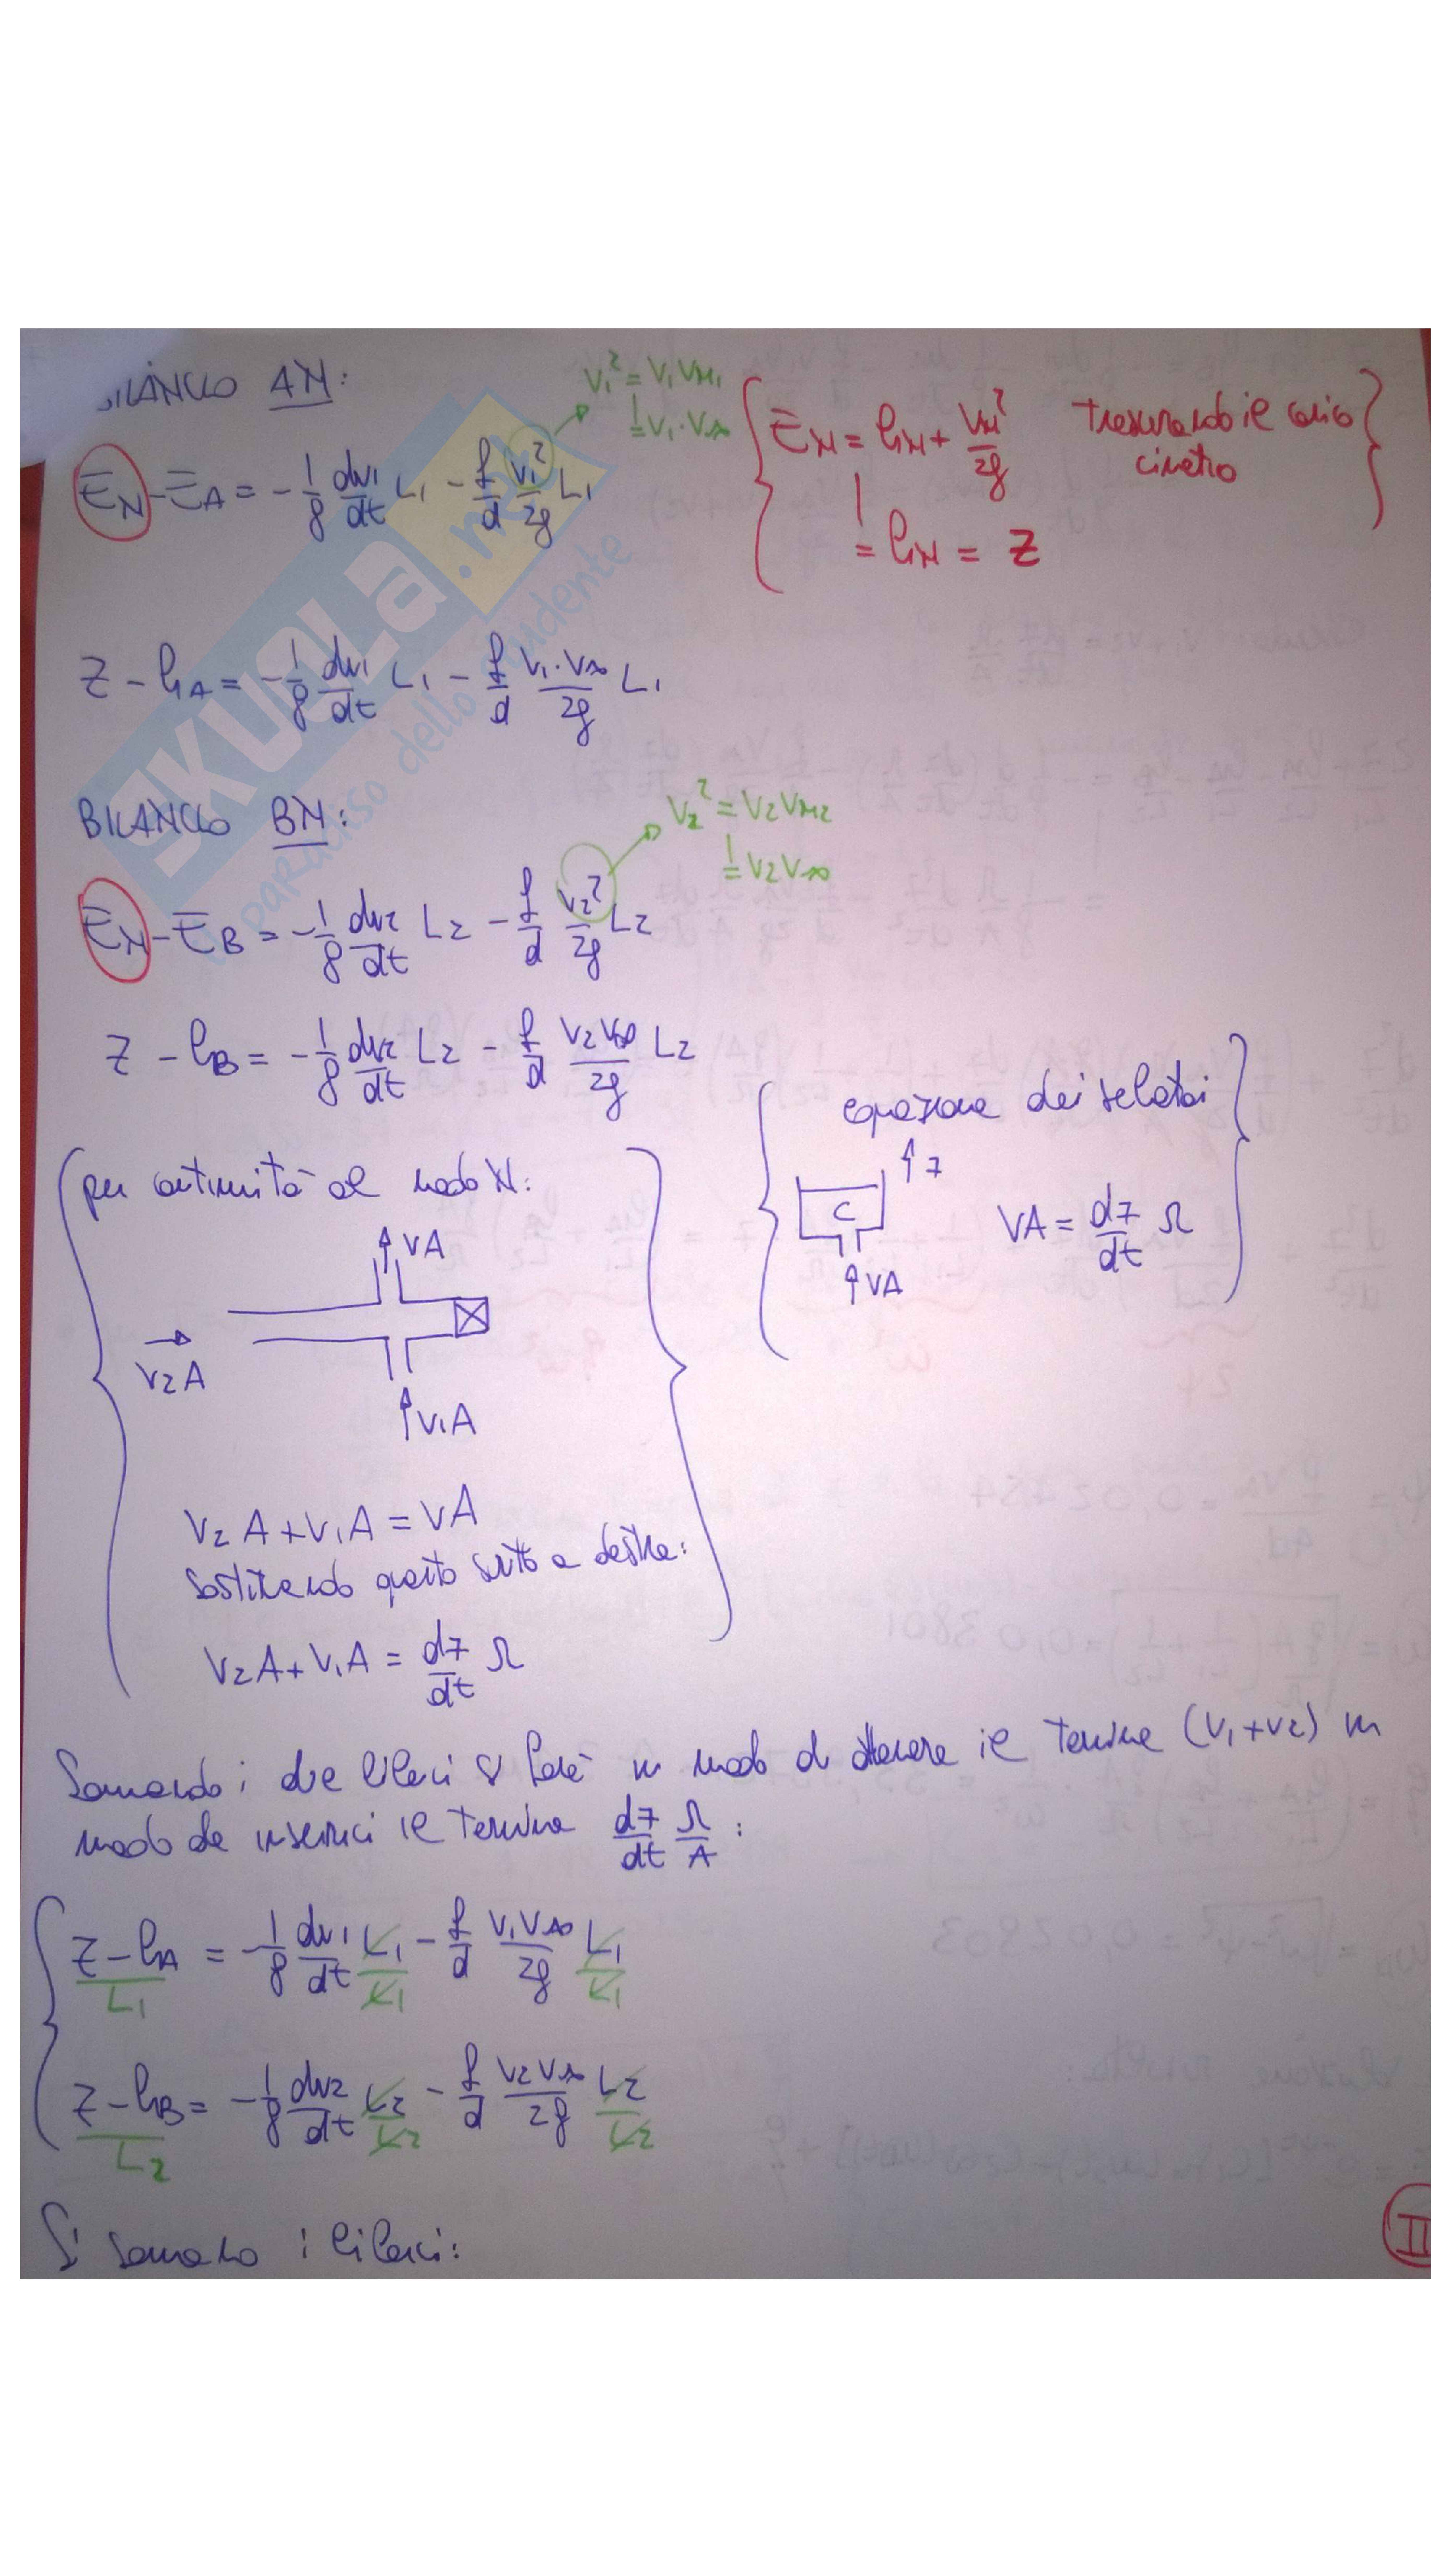 BILANCIO AN:
V₁² = V₁ VM₁
= V₁ · V∞
E_N - E_A = - 1/g dv₁/dt L₁ - f/d v₁²/2g L₁
E_N = h_N + V_N²/2g trascurando il carico
cinetico
= h_N = Z
SKUOLA.net
paradiso dello studente
Z - h_A = - 1/g dv₁/dt L₁ - f/d V₁·V∞/2g L₁
BILANCIO BN:
V₂² = V₂ VM₂
= V₂ V∞
E_N - E_B = - 1/g dv₂/dt L₂ - f/d V₂²/2g L₂
Z - h_B = - 1/g dv₂/dt L₂ - f/d V₂V∞/2g L₂
equazione dei serbatoi
z
C
VA = dz/dt Ω
VA
per continuità al nodo N:
VA
V₂A
V₁A
V₂A + V₁A = VA
sostituendo questo scritto a destra:
V₂A + V₁A = dz/dt Ω
Sommando i due bilanci si farà in modo di ottenere il termine (V₁+V₂) in
modo da inserirci il termine dz/dt Ω/A :
Z - h_A / L₁ = - 1/g dv₁/dt L₁/L₁ - f/d V₁V∞/2g L₁/L₁
Z - h_B / L₂ = - 1/g dv₂/dt L₂/L₂ - f/d V₂V∞/2g L₂/L₂
Si sommano i bilanci:
II